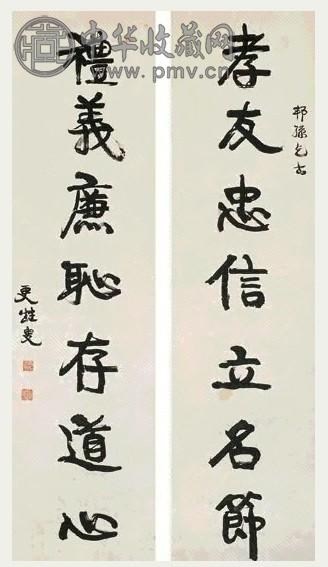 中华收藏网
www.pmv.cn
孝友忠信立名節
禮義廉恥存道心
更甡叟